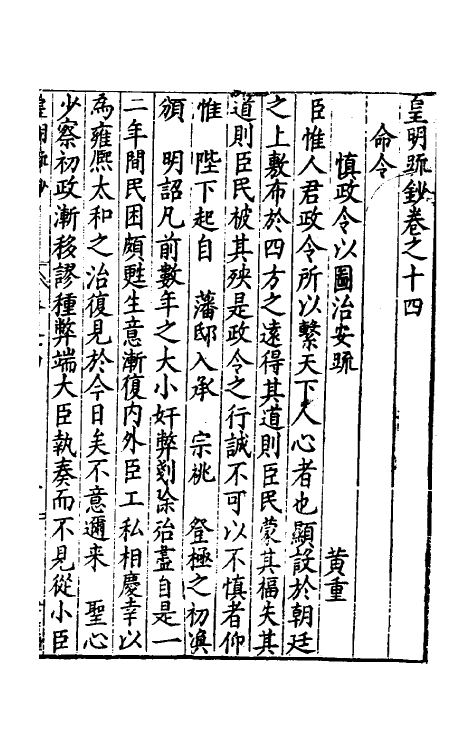 皇明疏鈔卷之十四
命令
慎政令以圖治安疏 黄重
臣惟人君政令所以繫天下人心者也顯設於朝廷
之上敷布於四方之遠得其道則臣民蒙其福失其
道則臣民被其殃是政令之行誠不可以不慎者仰
惟 陛下起自 藩邸入承 宗祧 登極之初渙
頒 明詔凡前數年之大小奸弊剗除殆盡自是一
二年間民困頗甦生意漸復内外臣工私相慶幸以
為雍熈太和之治復見於今日矣不意邇来 聖心
少察初政漸移謬種弊端大臣執奏而不見從小臣